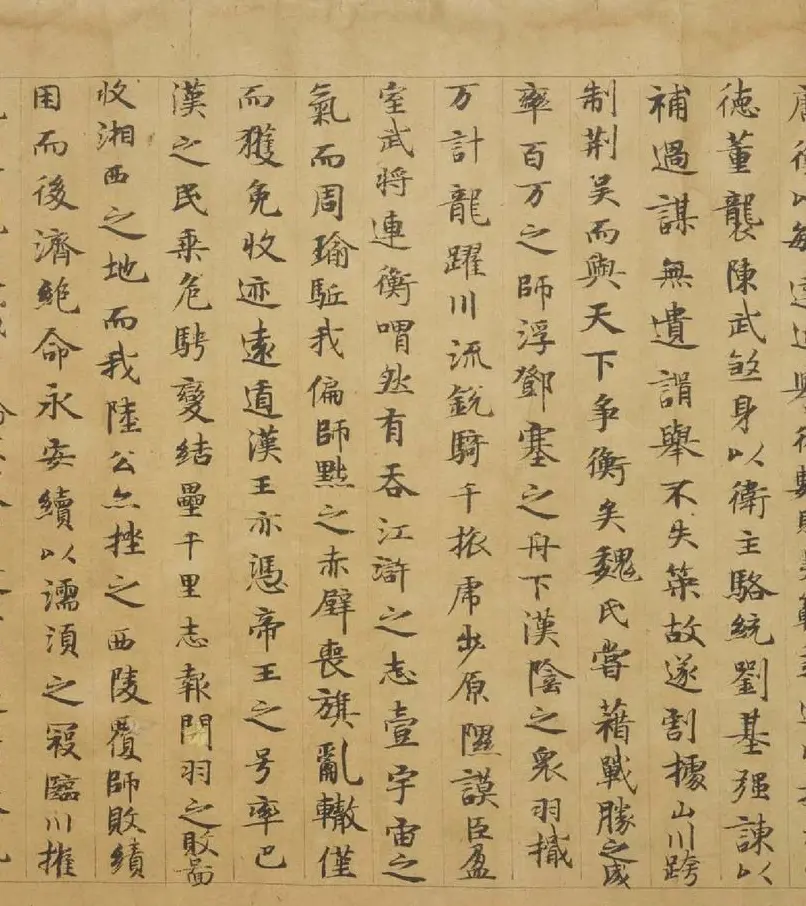 徳董襲陳武煞身以衛主駱統劉基强諫以
補過謀無遺諝舉不失筞故遂割據山川跨
制荆吴而與天下争衡矣魏氏嘗藉戰勝之威
率百万之師浮鄧塞之舟下漢陰之衆羽檝
万計龍躍川流鋭騎千旅虎步原隰謨臣盈
室武将連衡喟然有吞江滸之志壹宇宙之
氣而周瑜駈我偏師黜之赤壁喪旗亂轍僅
而獲免收迹遠遁漢王亦憑帝王之号率巴
漢之民乗危騁變結壘千里志報関羽之敗啚
收湘西之地而我陸公亦挫之西陵覆師敗績
困而後濟絶命永安續以濡須之寇臨川摧